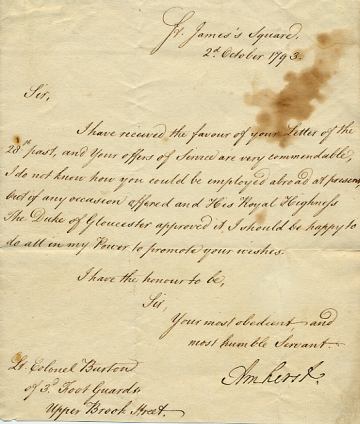 St. James's Square.
2d. October 1793.
Sir,
I have received the favour of your Letter of the
28th past, and Your offers of Service are very commendable,
I do not know how you could be employed abroad at present
but if any occasion offered and His Royal Highness
The Duke of Gloucester approved it I should be happy to
do all in my Power to promote your wishes.
I have the honour to be,
Sir,
Your most obedient and
most humble Servant
Amherst.
Lt. Colonel Burton
of 3d. Foot Guards
Upper Brook Street.